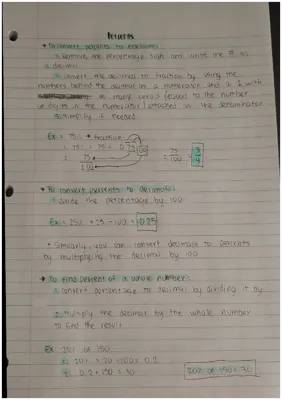 Percents
To convert percents to fractions:
① Remove the percentage sign and write the # as
a decimal
② Convert the decimal to fraction by using the
numbers behind the decimal as a numerator and a 1 with
as many zeros (equal to the number
of digits in the numerator) attached in the denominator
③ Simplify if needed
Ex: 75% → fraction
= 75% = 75 = 0.75
= 75 = 75 = 3
100 100 4
To convert percents to decimals:
① Divide the percentage by 100
Ex: 25% = 25 ÷ 100 = 0.25
Similarly, you can convert decimals to percents
by multiplying the decimal by 100
To find percent of a whole number:
① Convert percentage to decimal by dividing it by
② Multiply the decimal by the whole number
to find the result
Ex 20% of 150
① 20% = 20 ÷ 100 = 0.2
② 0.2 × 150 = 30
20% of 150 = 30